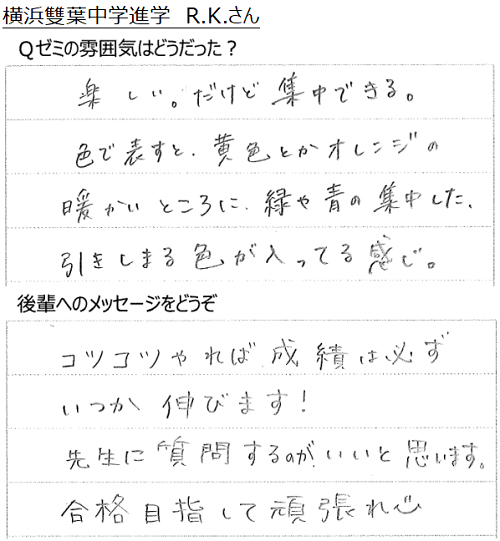 横浜雙葉中学進学 R.K.さん
Ｑゼミの雰囲気はどうだった？
楽しい。だけど集中できる。
色で表すと、黄色とかオレンジの
暖かいところに、緑や青の集中した、
引きしまる色が入ってる感じ。
後輩へのメッセージをどうぞ
コツコツやれば成績は必ず
いつか伸びます！
先生に質問するのが、いいと思います。
合格目指して頑張れ